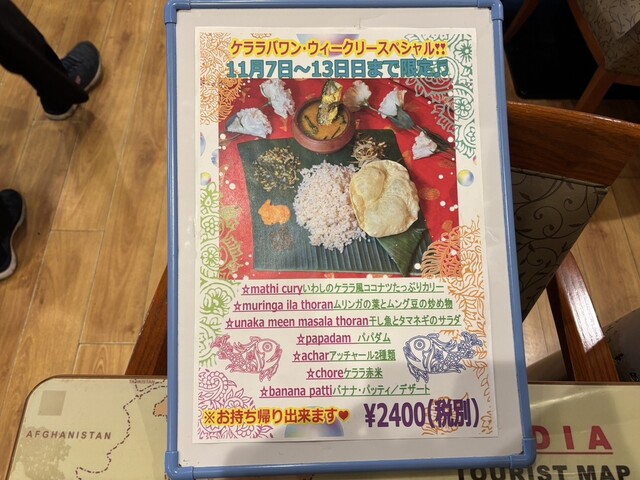 ケララバワン・ウィークリースペシャル!!
11月7日〜13日日まで限定♬
☆mathi curyいわしのケララ風ココナツたっぷりカリー
☆muringa ila thoranムリンガの葉とムング豆の炒め物
☆unaka meen masala thoran干し魚とタマネギのサラダ
☆papadam パパダム
☆acharアッチャール2種類
☆choreケララ赤米
☆banana pattiバナナ・パッティ／デザート
※お持ち帰り出来ます♥
¥2400(税別)
AFGHANISTAN
DIA
TOURIST MAP